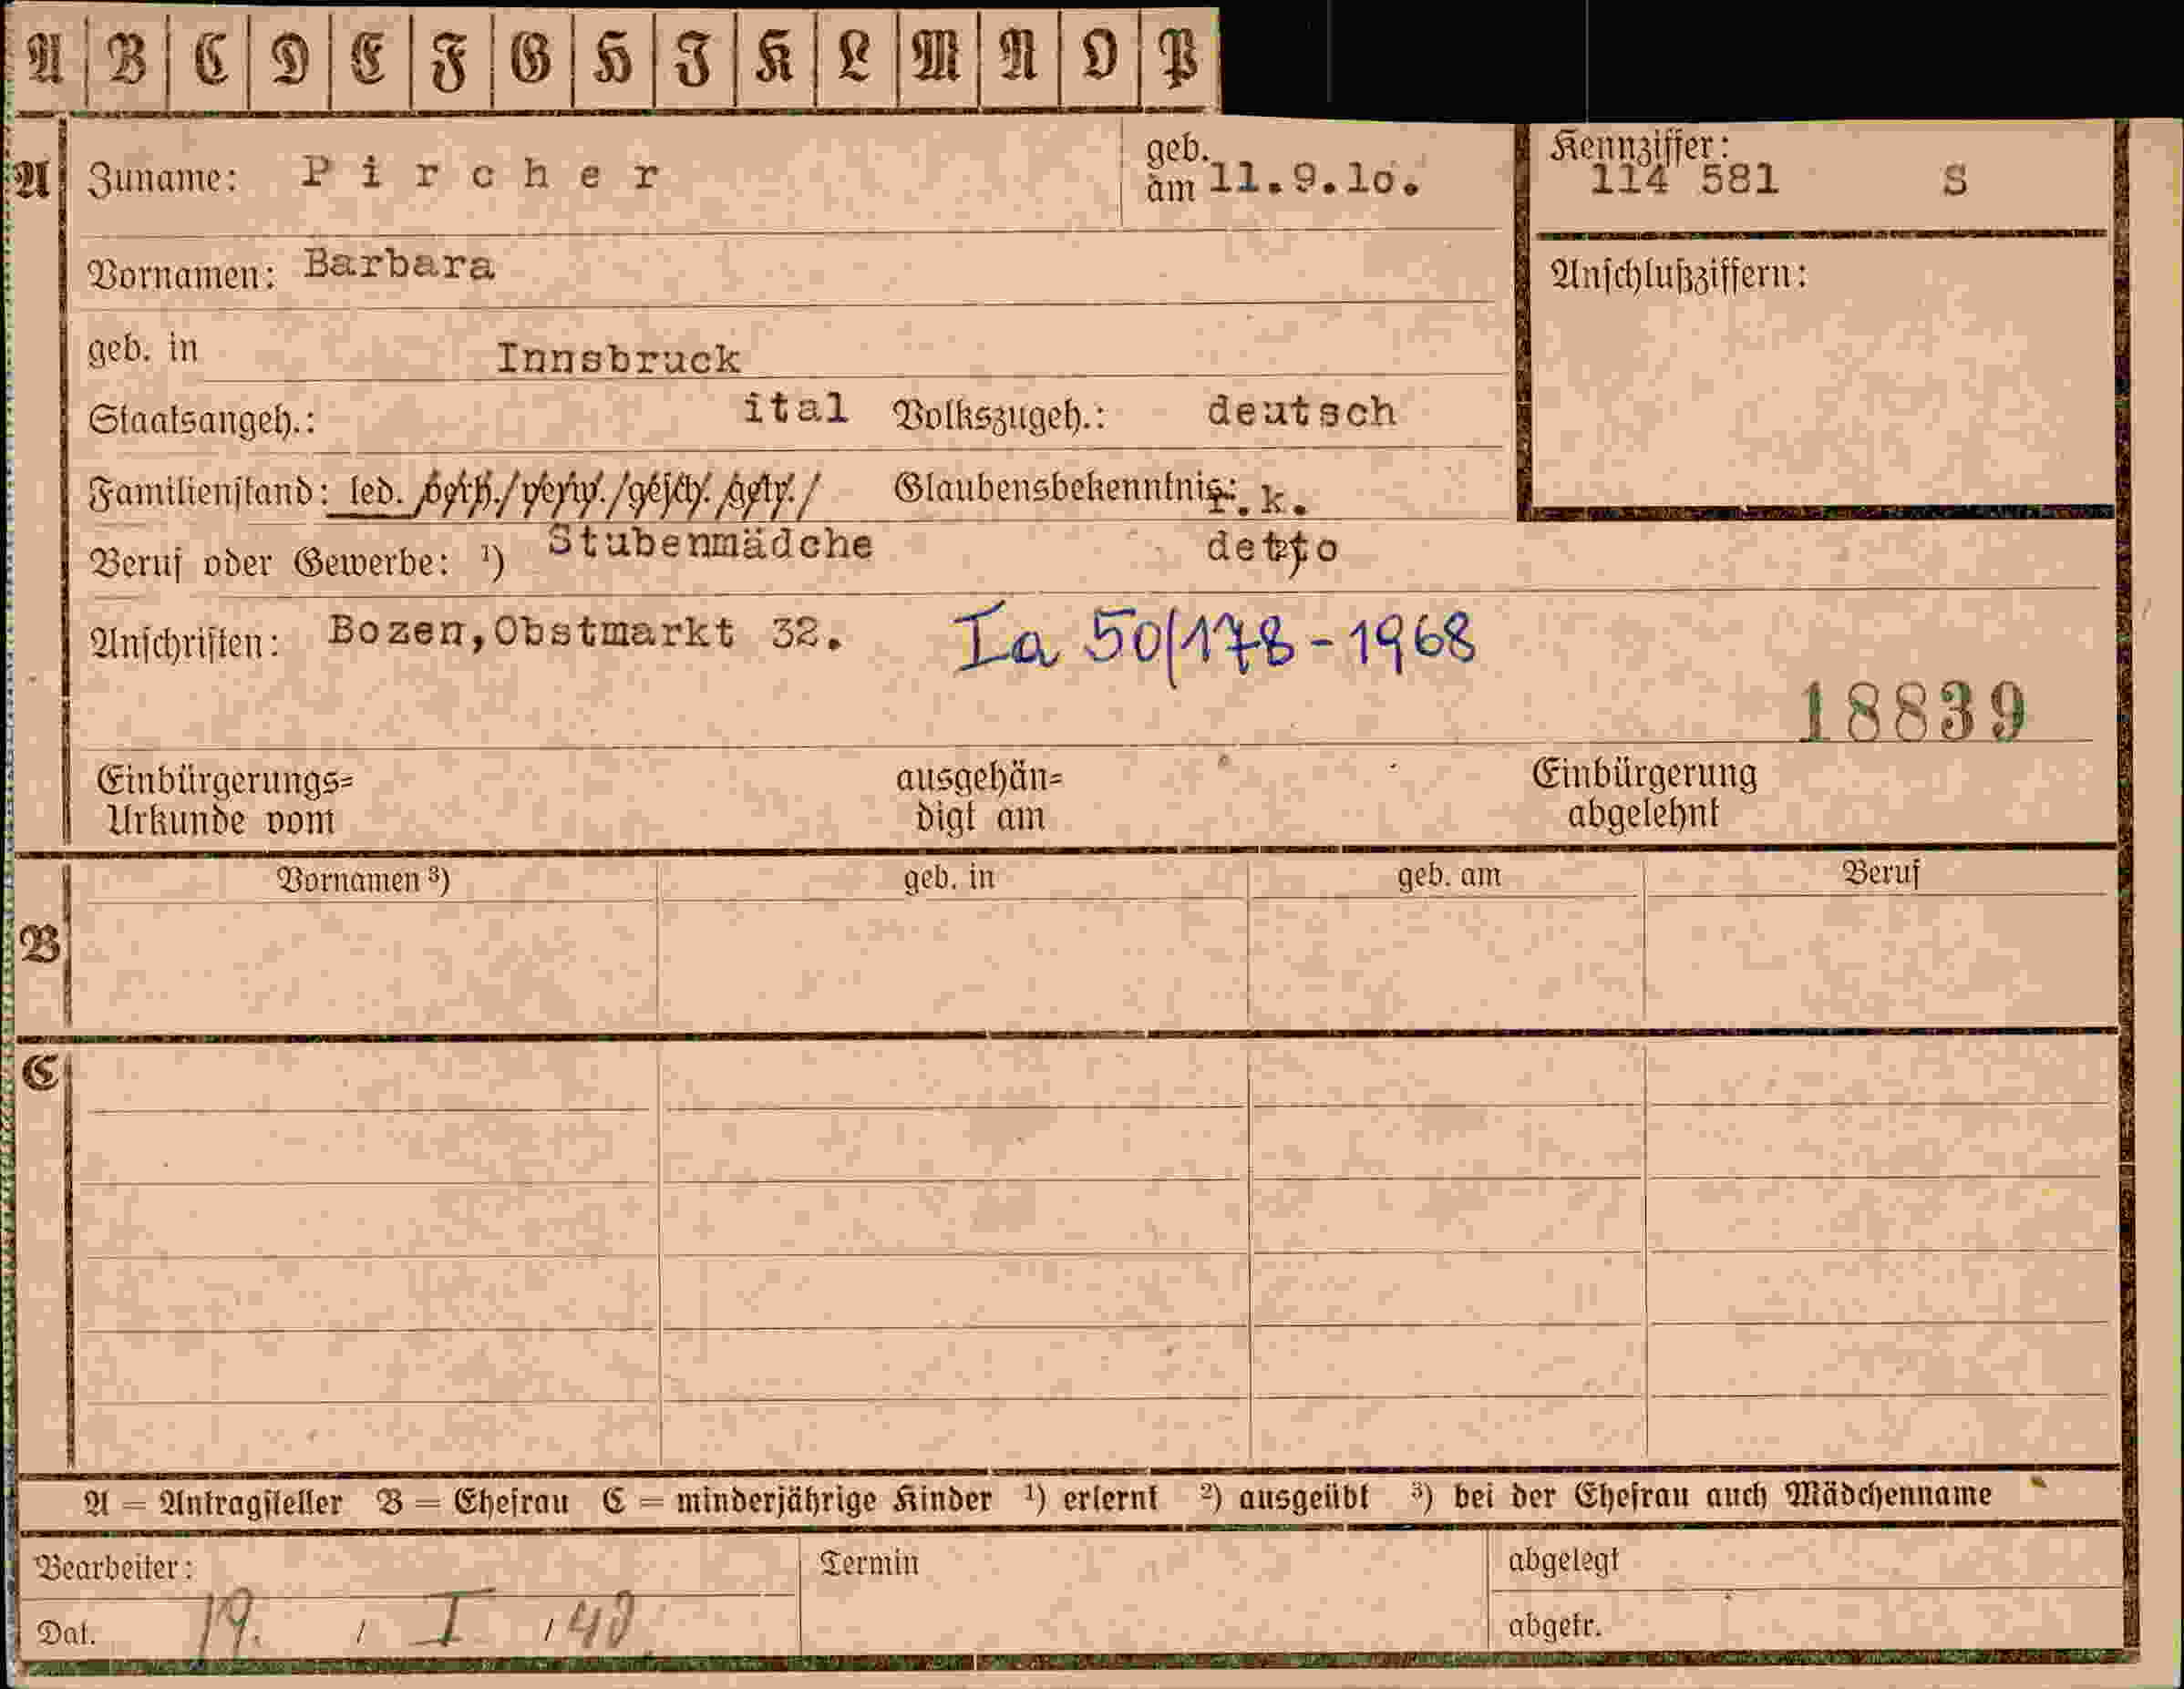 A B C D E F G H J K L M N O P
A Zuname: Pircher geb. am 11.9.10. Kennziffer: 114 581 S
Vornamen: Barbara Anschlußziffern:
geb. in Innsbruck
Staatsangeh.: ital Volkszugeh.: deutsch
Familienstand: led. verh./verw./gesch. getr./ Glaubensbekenntnis: r.k.
Beruf oder Gewerbe: ¹) Stubenmädche detto
Anschriften: Bozen,Obstmarkt 32. Ia 50/178-1968
18839
Einbürgerungs= ausgehän= Einbürgerung
Urkunde vom digt am abgelehnt
Vornamen ³) geb. in geb. am Beruf
B
C
A = Antragsteller B = Ehefrau C = minderjährige Kinder ¹) erlernt ²) ausgeübt ³) bei der Ehefrau auch Mädchenname
Bearbeiter: Termin abgelegt
Dat. 19. / I / 40 abgetr.